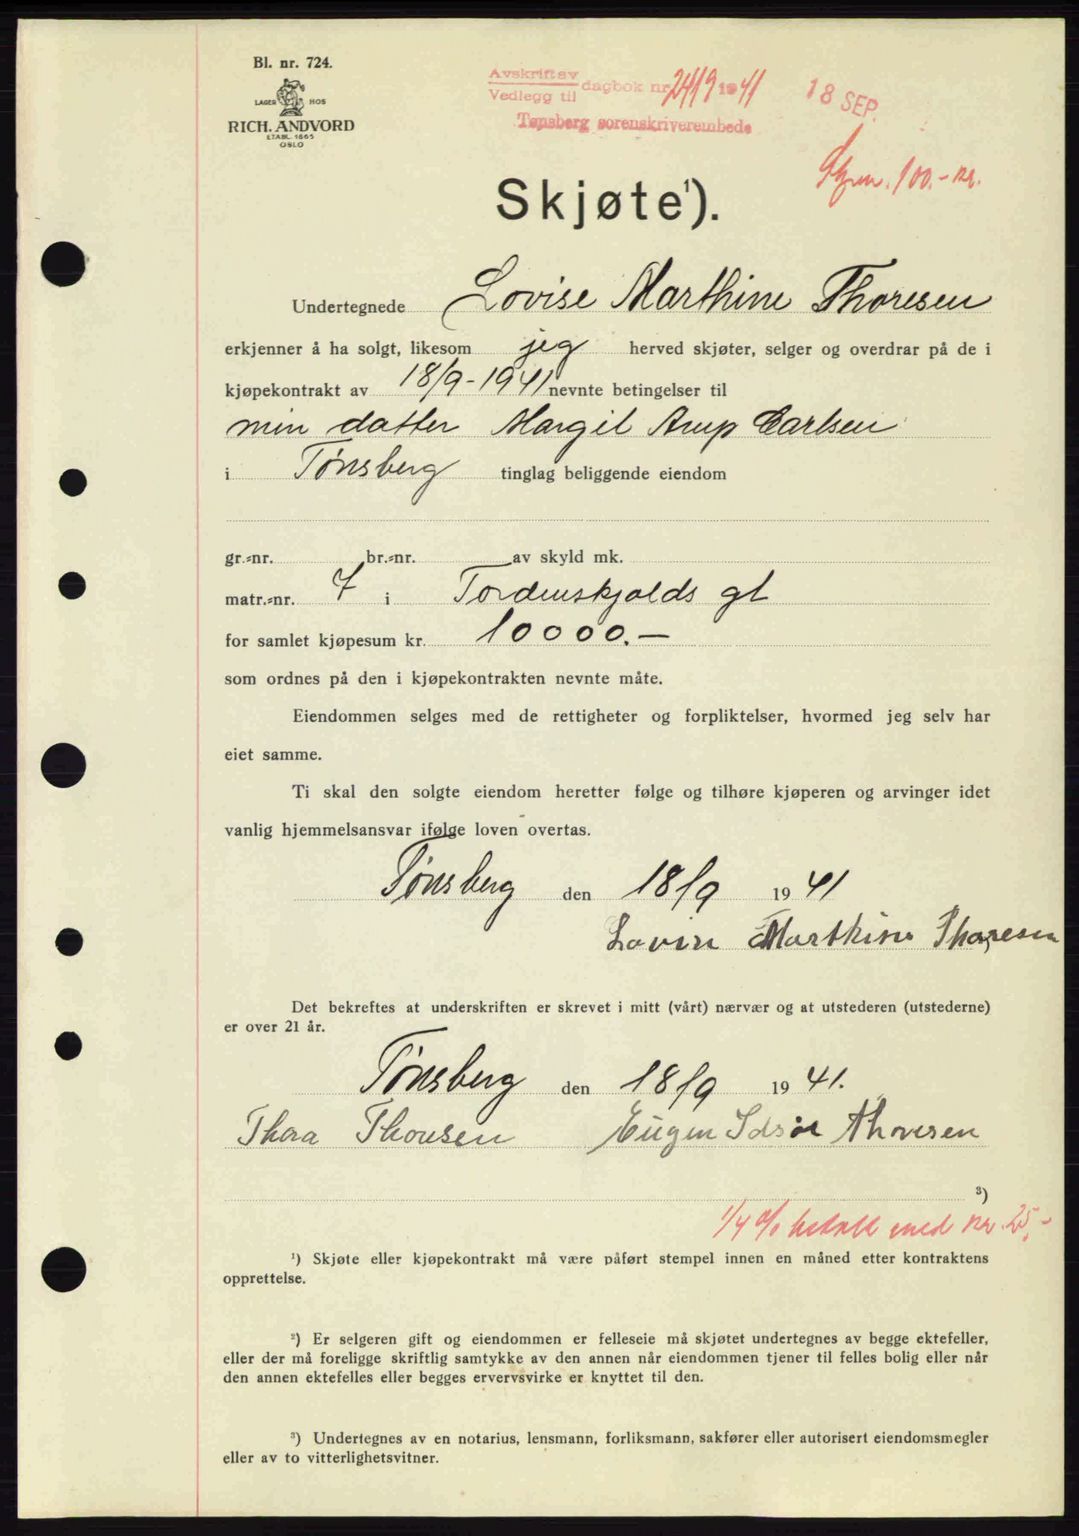 Bl. nr. 724.
LAGER HOS
RICH. ANDVORD
ETABL. 1865
OSLO
Avskrift av
Vedlegg til dagbok nr 2419 1941
Tønsberg sorenskriverembede
18 SEP.
100.- kr.
Skjøte¹).
Undertegnede Lovise Marthine Thoresen
erkjenner å ha solgt, likesom jeg herved skjøter, selger og overdrar på de i
kjøpekontrakt av 18/9-1941 nevnte betingelser til
min datter Margit Arup Carlsen
i Tønsberg tinglag beliggende eiendom
gr.-nr. br.-nr. av skyld mk.
matr.-nr. 7 i Tordenskjolds gt
for samlet kjøpesum kr. 10000.—
som ordnes på den i kjøpekontrakten nevnte måte.
Eiendommen selges med de rettigheter og forpliktelser, hvormed jeg selv har
eiet samme.
Ti skal den solgte eiendom heretter følge og tilhøre kjøperen og arvinger idet
vanlig hjemmelsansvar ifølge loven overtas.
Tønsberg den 18/9 1941
Lovise Marthine Thoresen
Det bekreftes at underskriften er skrevet i mitt (vårt) nærvær og at utstederen (utstederne)
er over 21 år.
Tønsberg den 18/9 1941.
Thora Thoresen Eugen Thoresen
³)
1/4 % betalt med kr. 25,-
¹) Skjøte eller kjøpekontrakt må være påført stempel innen en måned etter kontraktens
opprettelse.
²) Er selgeren gift og eiendommen er felleseie må skjøtet undertegnes av begge ektefeller,
eller der må foreligge skriftlig samtykke av den annen når eiendommen tjener til felles bolig eller når
den annen ektefelles eller begges ervervsvirke er knyttet til den.
³) Undertegnes av en notarius, lensmann, forliksmann, sakfører eller autorisert eiendomsmegler
eller av to vitterlighetsvitner.